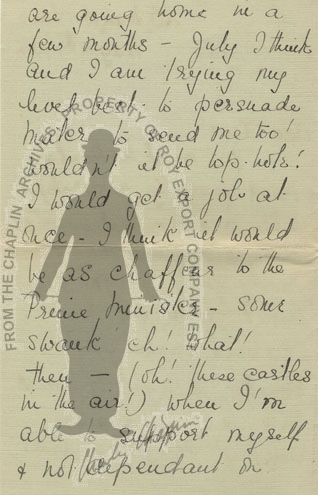 are going home in a
few months – July I think
and I am trying my
level best to persuade
mater to send me too!
wouldn't it be top-hole!
I would get a job at
once – I think it would
be as chaffeur to the
Prime Minister – some
swank eh! what!
then – (oh! these castles
in the air!) when I'm
able to support myself
& not dependant on
FROM THE CHAPLIN ARCHIVES, PROPERTY OF ROY EXPORT COMPANY EST